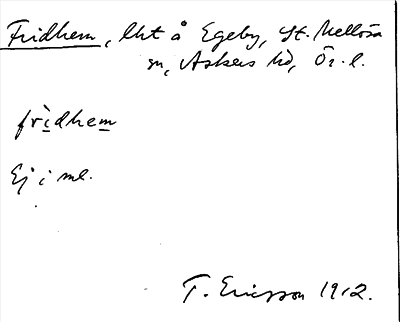 Fridhem, lht å Egeby, St. Mellösa
sn, Askers hd, Ör. l.
frìdhem
Ej i ml.
T. Ericsson 1912.